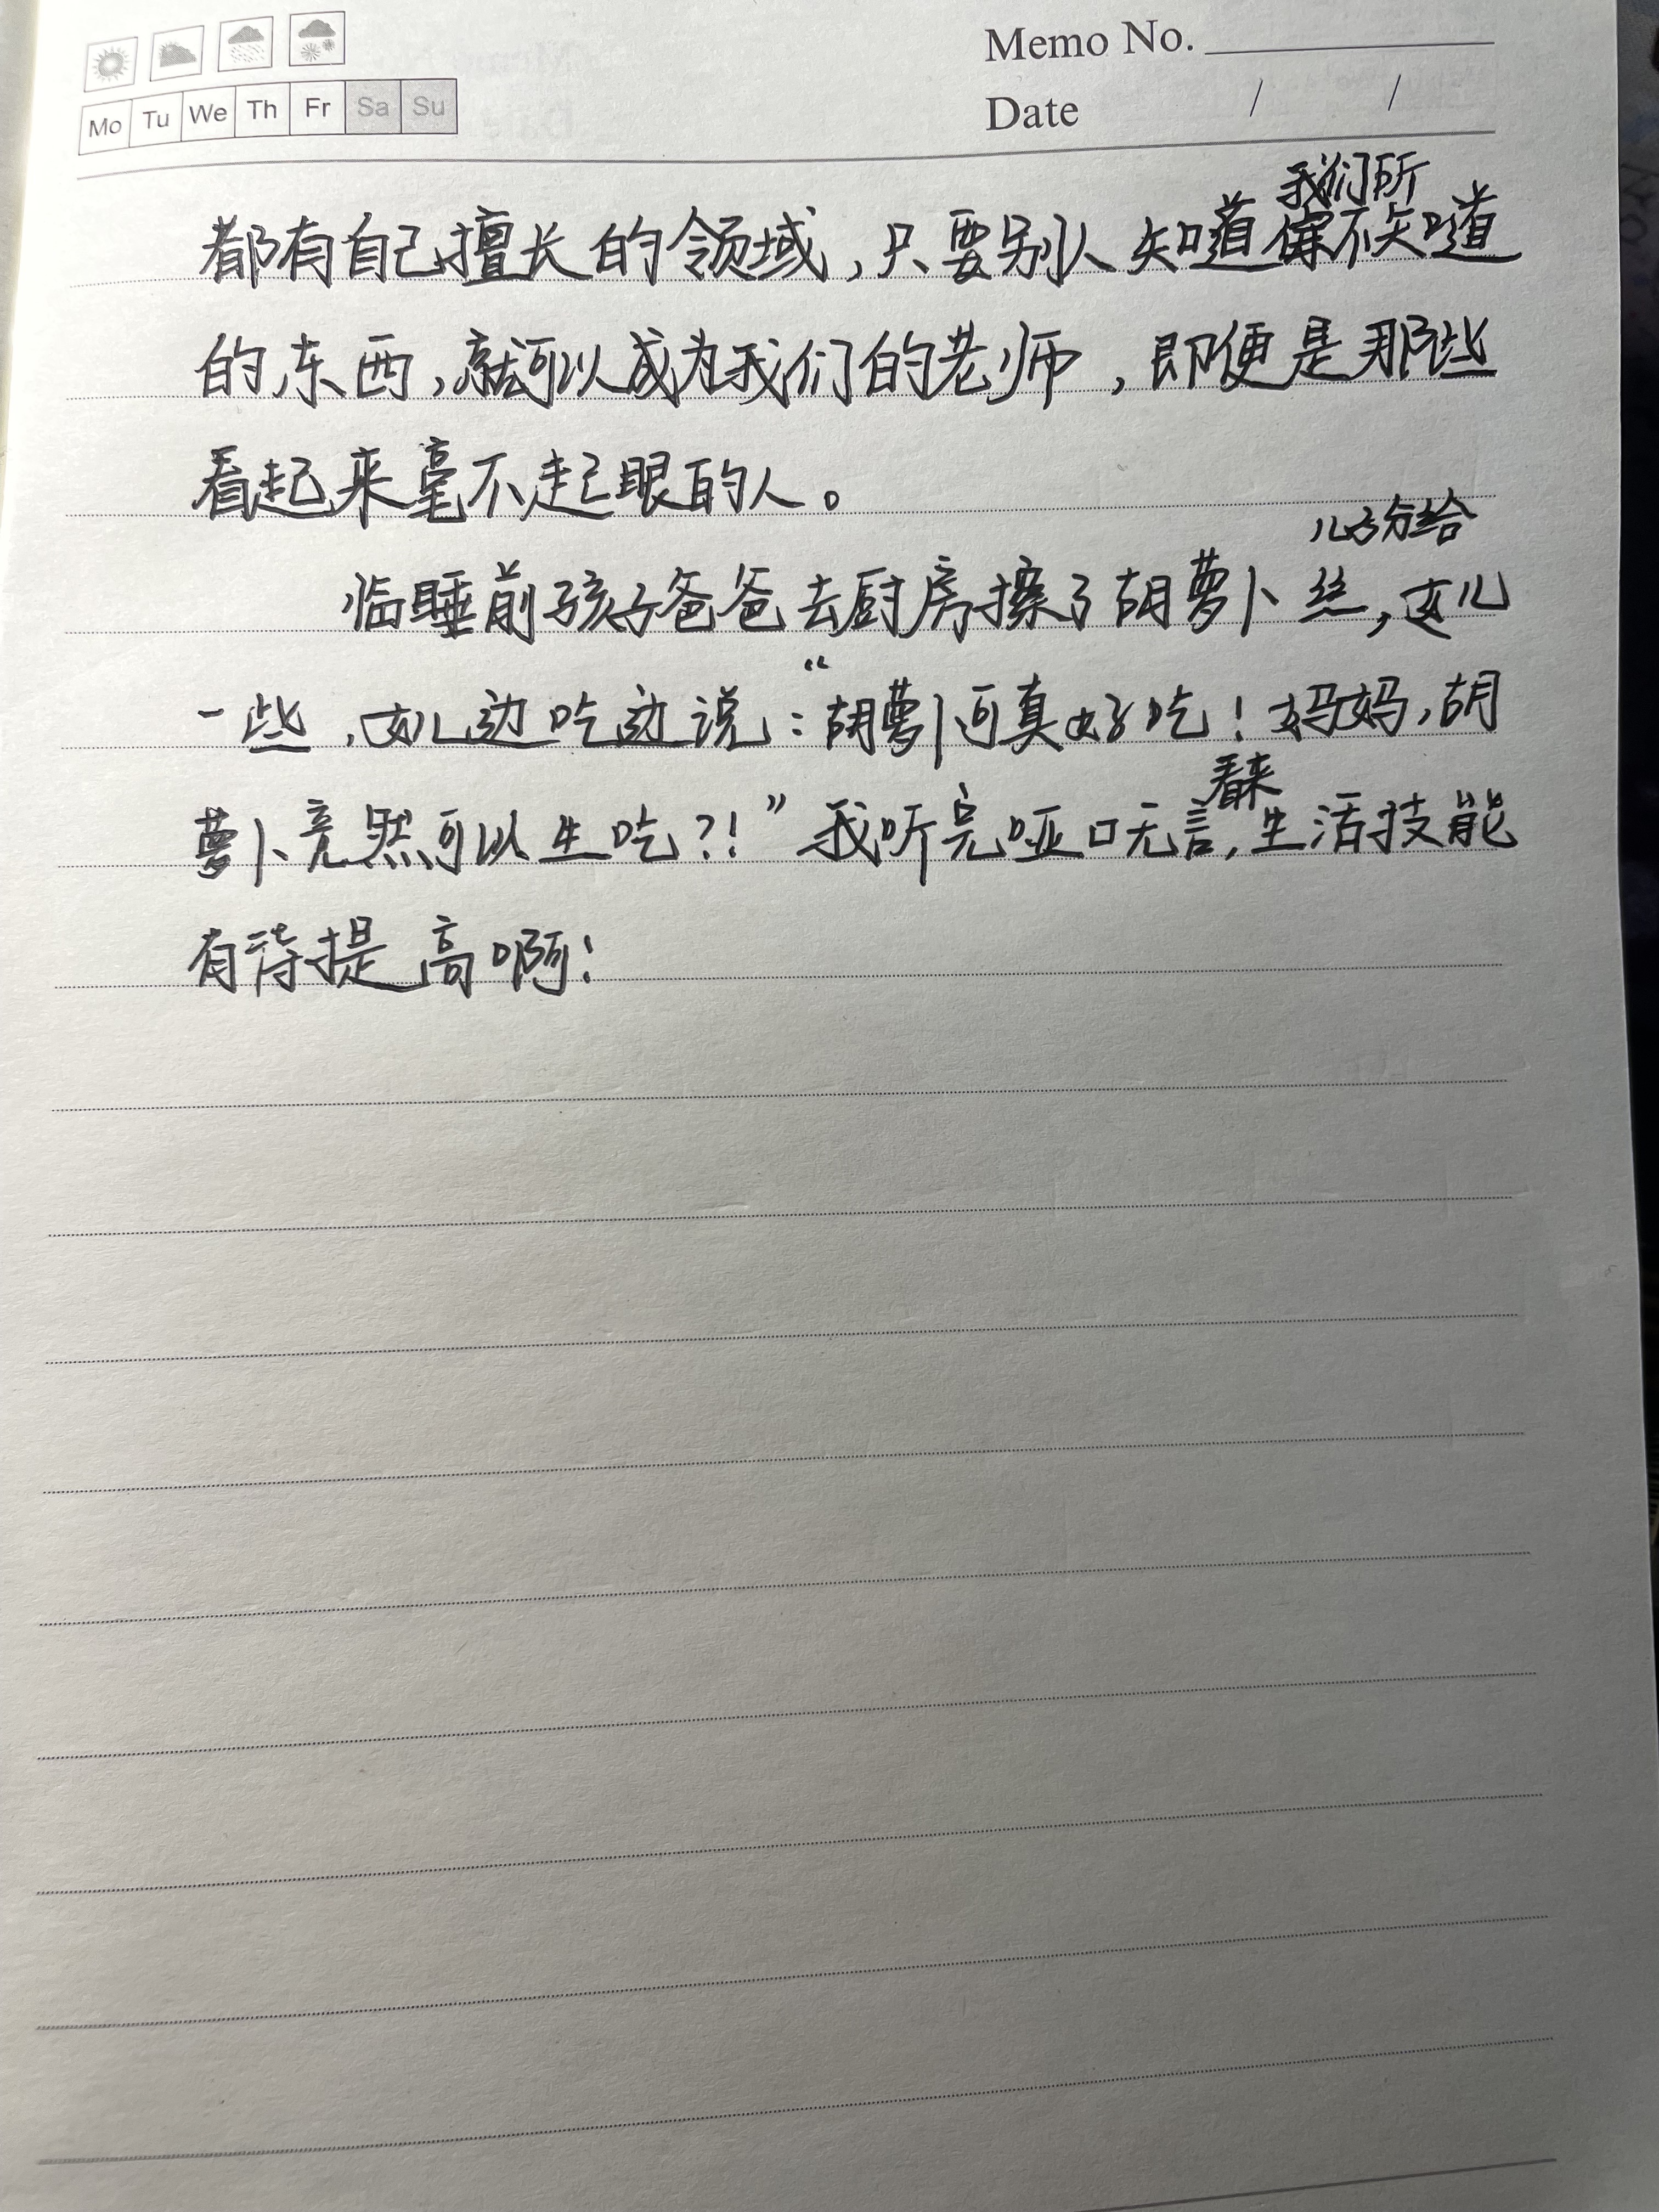 Memo No.
Mo Tu We Th Fr Sa Su
Date / /
我们所
都有自己擅长的领域，只要别人知道不知道
的东西，就可以成为我们的老师，即便是那些
看起来毫不起眼的人。
儿子分给
临睡前孩子爸爸去厨房擦了胡萝卜丝，女儿
一些，女儿边吃边说：“胡萝卜可真好吃！妈妈，胡
看来
萝卜竟然可以生吃？！”我听完哑口无言，生活技能
有待提高啊！